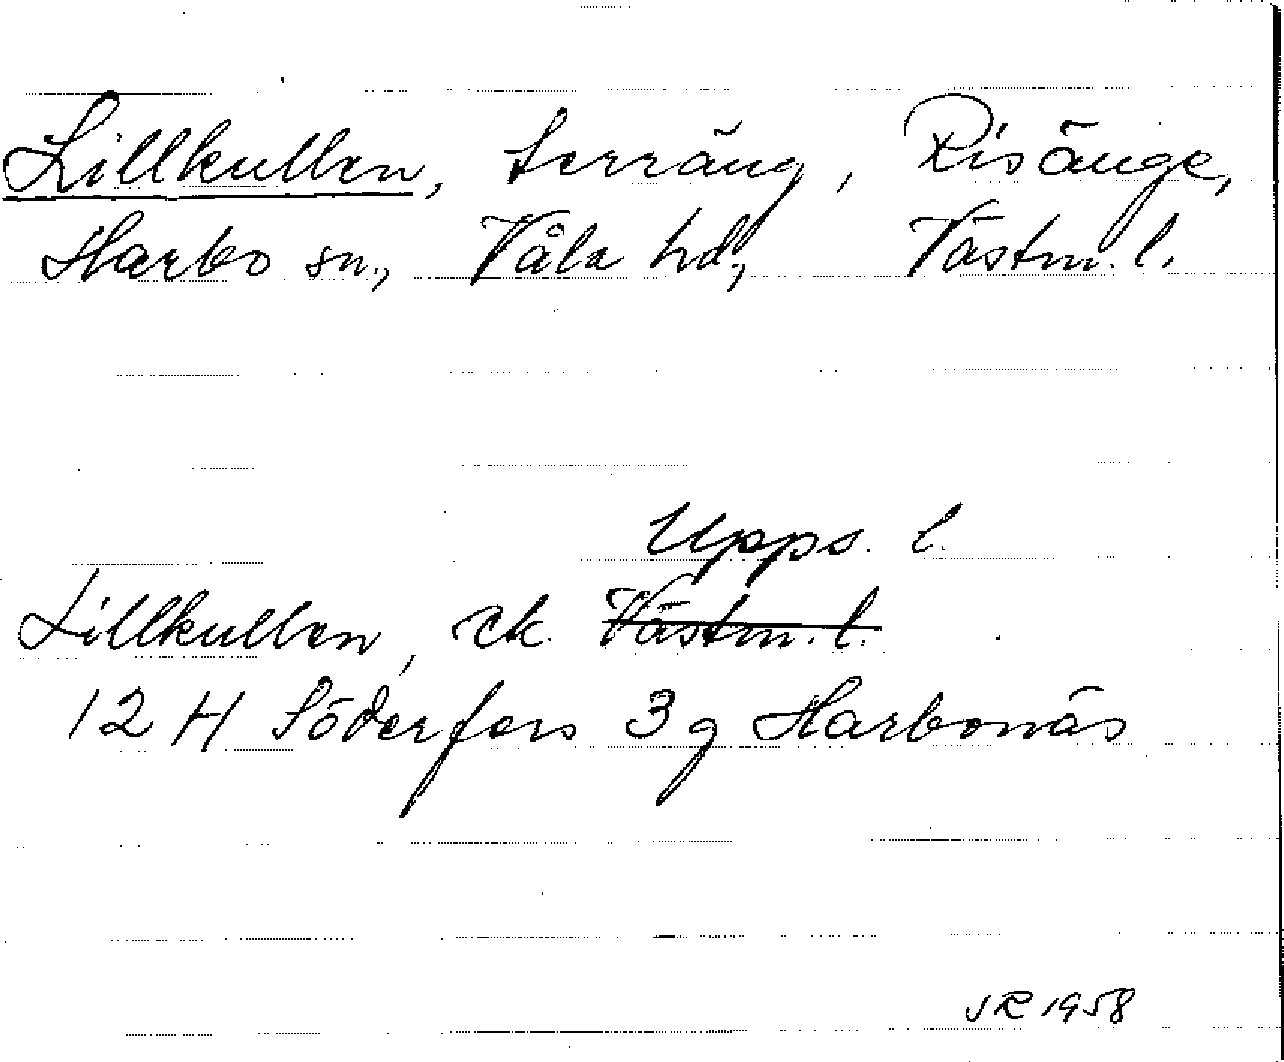 Lillkullen, terräng, Risänge,
Harbo sn., Våla hd., Västm. l.
Upps. l.
Lillkullen, ek. Västm. l.
12 H Söderfors 3 g Harbonäs
JR 1958